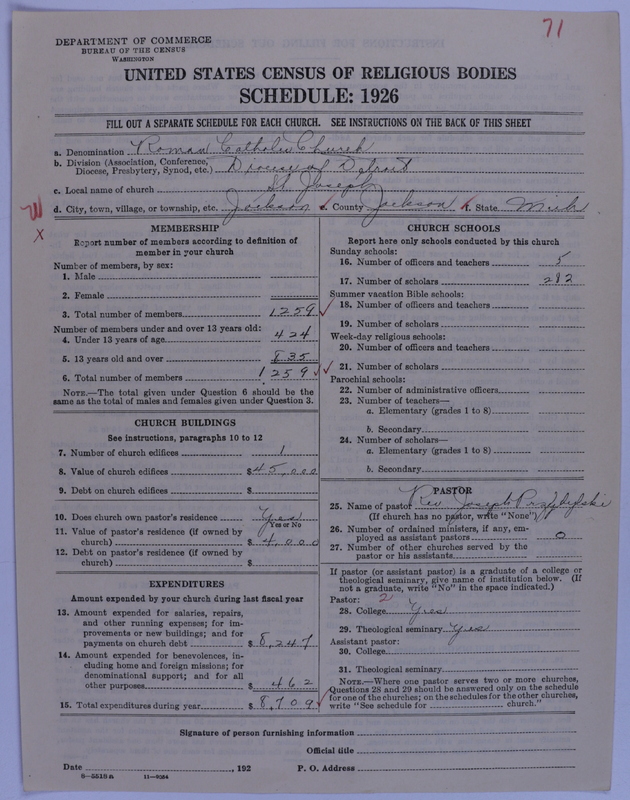 71
DEPARTMENT OF COMMERCE
BUREAU OF THE CENSUS
WASHINGTON
UNITED STATES CENSUS OF RELIGIOUS BODIES
SCHEDULE: 1926
FILL OUT A SEPARATE SCHEDULE FOR EACH CHURCH. SEE INSTRUCTIONS ON THE BACK OF THIS SHEET
a. Denomination Roman Catholic Church
b. Division (Association, Conference, Diocese, Presbytery, Synod, etc.) Diocese of Detroit
c. Local name of church St Joseph
d. City, town, village, or township, etc. Jackson e. County Jackson f. State Mich
x
MEMBERSHIP
Report number of members according to definition of
member in your church
Number of members, by sex:
1. Male
2. Female
3. Total number of members 1259 ✓
Number of members under and over 13 years old:
4. Under 13 years of age 424
5. 13 years old and over 835
6. Total number of members 1259 ✓✓
NOTE.—The total given under Question 6 should be
same as the total of males and females given under Question 3.
CHURCH BUILDINGS
See instructions, paragraphs 10 to 12
7. Number of church edifices 1
8. Value of church edifices $45,000
9. Debt on church edifices $
10. Does church own pastor's residence Yes
Yes or No
11. Value of pastor's residence (if owned by
church) $4,000
12. Debt on pastor's residence (if owned by
church) $
EXPENDITURES
Amount expended by your church during last fiscal year
13. Amount expended for salaries, repairs,
and other running expenses; for im-
provements or new buildings; and for
payments on church debt $8,247
14. Amount expended for benevolences, in-
cluding home and foreign missions; for
denominational support; and for all
other purposes $462
15. Total expenditures during year $8,709 ✓
CHURCH SCHOOLS
Report here only schools conducted by this church
Sunday schools:
16. Number of officers and teachers 5
17. Number of scholars 282
Summer vacation Bible schools:
18. Number of officers and teachers
19. Number of scholars
Week-day religious schools:
20. Number of officers and teachers
21. Number of scholars
Parochial schools:
22. Number of administrative officers
23. Number of teachers—
a. Elementary (grades 1 to 8)
b. Secondary
24. Number of scholars—
a. Elementary (grades 1 to 8)
b. Secondary
PASTOR
25. Name of pastor Rev Joseph Przybylski
(If church has no pastor, write "None")
26. Number of ordained ministers, if any, em-
ployed as assistant pastors 0
27. Number of other churches served by the
pastor or his assistants
If pastor (or assistant pastor) is a graduate of a college or
theological seminary, give name of institution below. (If
not a graduate, write "No" in the space indicated.)
Pastor: 2
28. College Yes
29. Theological seminary Yes
Assistant pastor:
30. College
31. Theological seminary
NOTE.—Where one pastor serves two or more churches,
Questions 28 and 29 should be answered only on the schedule
for one of the churches; on the schedules for the other churches,
write "See schedule for church."
Signature of person furnishing information
Official title
Date , 192 P. O. Address
8—5515a 11—9034